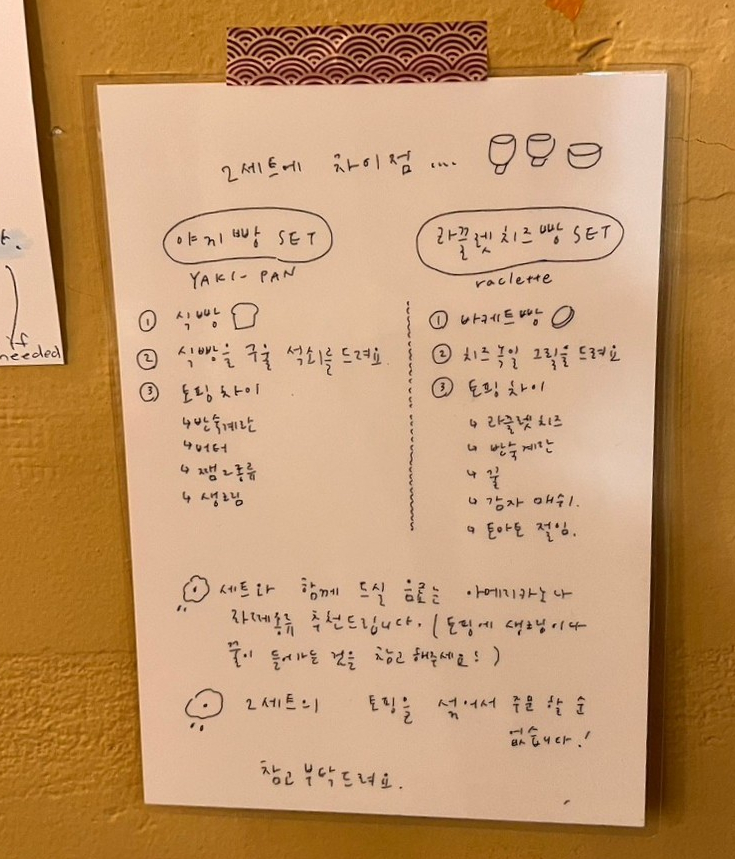 2세트에 차이점 ...
야끼빵 SET
YAKI-PAN
① 식빵
② 식빵을 구울 석쇠를 드려요
③ 토핑차이
↳ 반숙계란
↳ 버터
↳ 쨈2종류
↳ 생크림
라끌렛치즈빵 SET
raclette
① 바케트빵
② 치즈녹일 그릴을 드려요
③ 토핑차이
↳ 라끌렛치즈
↳ 반숙계란
↳ 꿀
↳ 감자 매쉬.
↳ 토마토 절임.
세트와 함께 드실 음료는 아메리카노나
라떼종류 추천드립니다. (토핑에 생크림이나
꿀이 들어가는 것을 참고해주세요!)
2세트의 토핑을 섞어서 주문 할 순
없습니다!
참고 부탁드려요.
if
needed